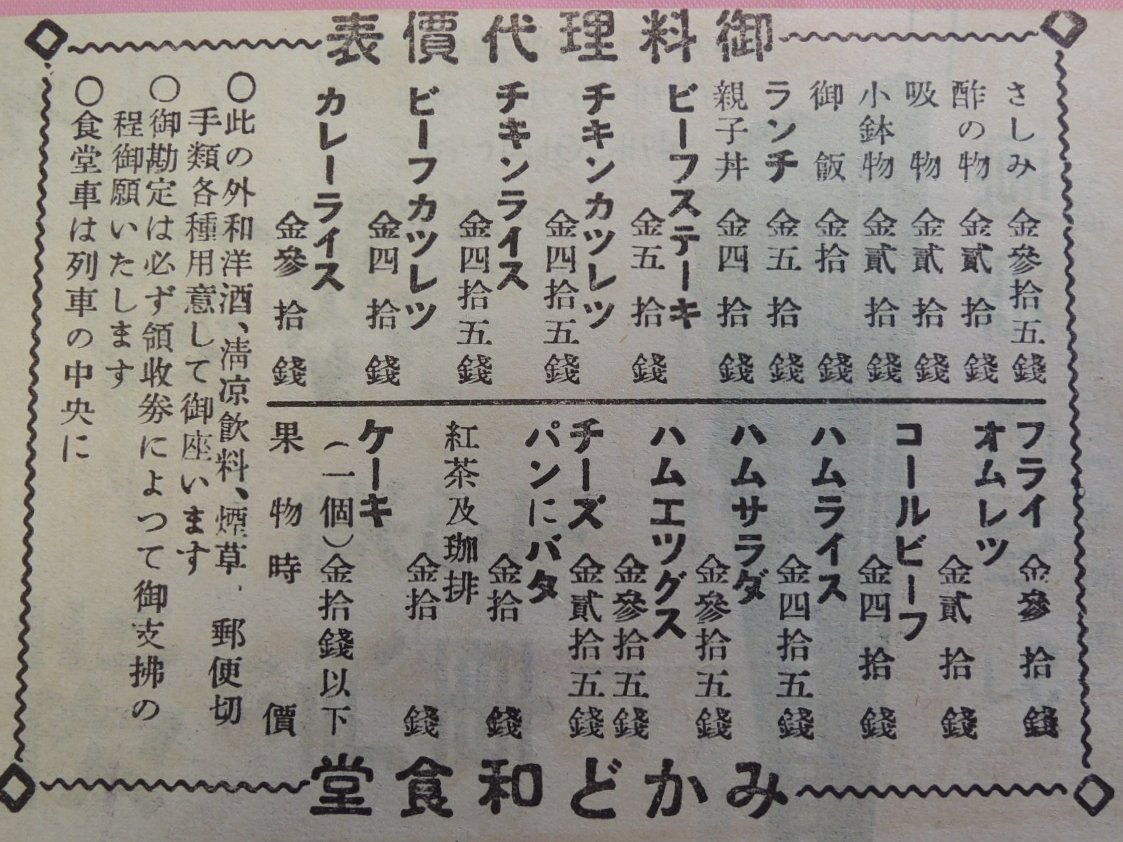 御料理代價表
さしみ 金參拾五錢
酢の物 金貳拾錢
吸物 金貳拾錢
小鉢物 金貳拾錢
御飯 金拾錢
ランチ 金五拾錢
親子丼 金四拾錢
ビーフステーキ 金五拾錢
チキンカツレツ 金四拾五錢
チキンライス 金四拾五錢
ビーフカツレツ 金四拾錢
カレーライス 金參拾錢
フライ 金參拾錢
オムレツ 金貳拾錢
コールビーフ 金四拾錢
ハムライス 金四拾五錢
ハムサラダ 金參拾五錢
ハムエツグス 金參拾五錢
チーズ 金貳拾五錢
パンにバタ 金拾錢
紅茶及珈排 金拾錢
ケーキ
(一個)金拾錢以下
果物時價
〇此の外和洋酒、淸凉飮料、煙草、郵便切
手類各種用意して御座います
〇御勘定は必ず領收劵によつて御支拂の
程御願いたします
〇食堂車は列車の中央に
みかど和食堂